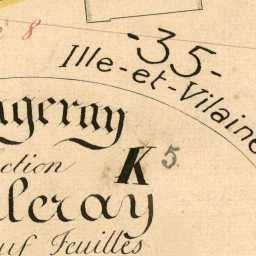 8
-35-
Ille-et-Vilaine
ngeray
ction
K 5.
leray
uf Feuilles